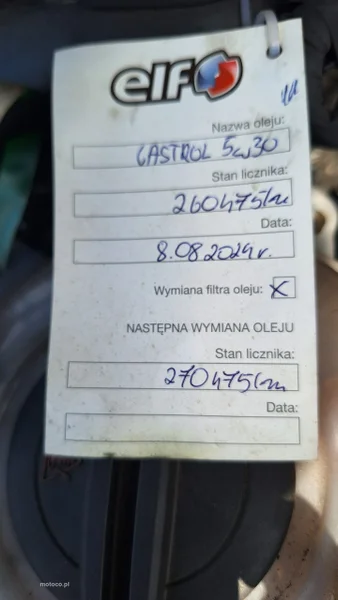 elf
Nazwa oleju:
CASTROL 5w30
Stan licznika:
260475km
Data:
8.08.2024r.
Wymiana filtra oleju: X
NASTĘPNA WYMIANA OLEJU
Stan licznika:
270475km
Data:
motoco.pl